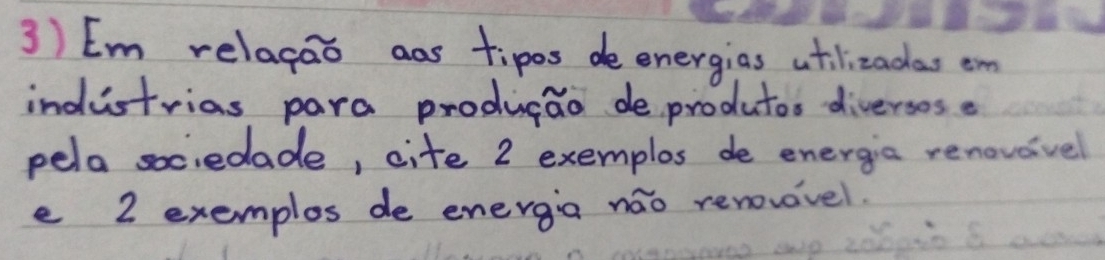 3) Em relação aos tipos de energias utilizadas em
indústrias para produção de produtos diversos e
pela sociedade, cite 2 exemplos de energia renovável
e 2 exemplos de energia não renovável.